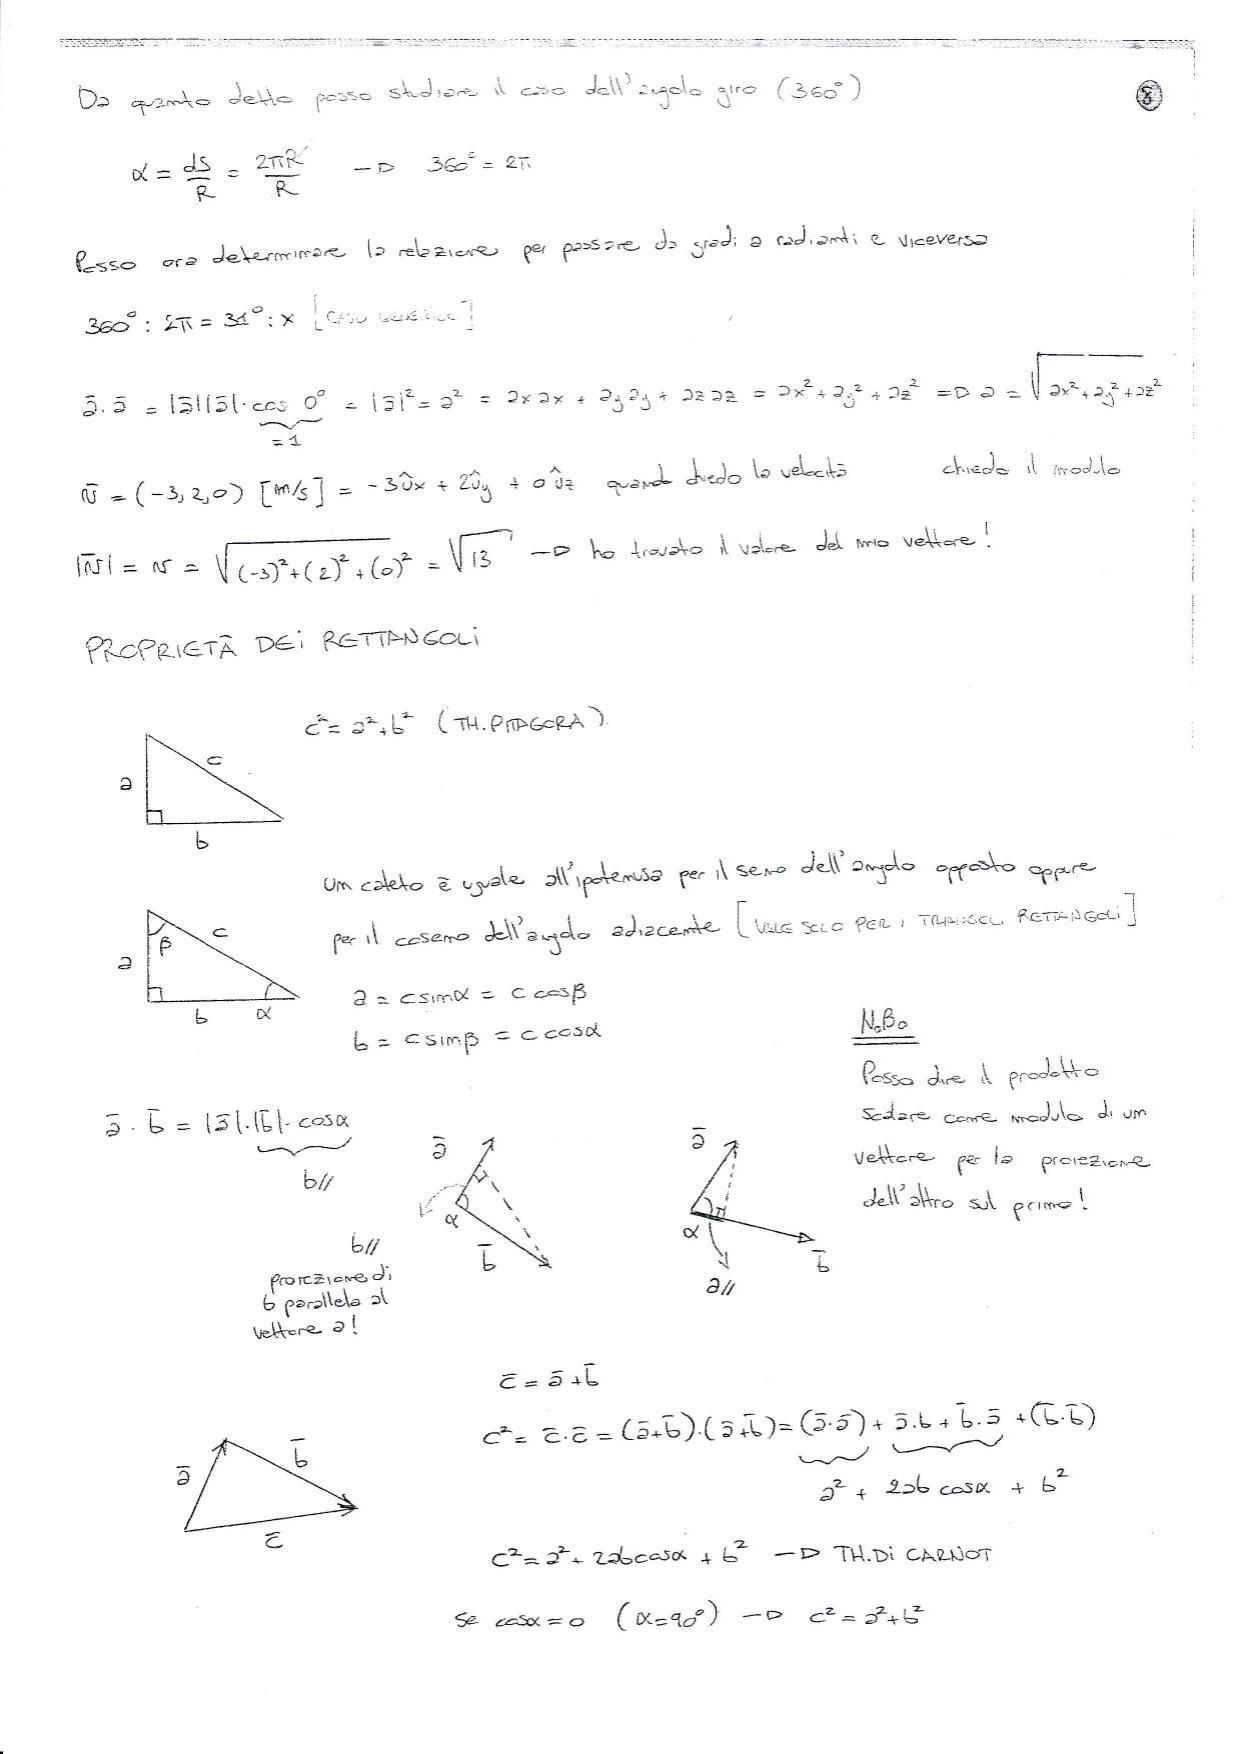 Da quanto detto posso studiare il caso dell'angolo giro (360°)
8
α = ds/R = 2πR/R —▷ 360° = 2π
Posso ora determinare la relazione per passare da gradi a radianti e viceversa
360° : 2π = 31° : x [CASO GENERICO]
ā · ā = |ā||ā| · cos 0° = |ā|² = a² = ax ax + ay ay + az az = ax² + ay² + az² =▷ a = √ax² + ay² + az²
= 1
v̄ = (-3, 2, 0) [m/s] = -3ûx + 2ûy + 0ûz quando chiedo la velocità chiedo il modulo
|v̄| = v = √(-3)² + (2)² + (0)² = √13 —▷ ho trovato il valore del mio vettore!
PROPRIETÀ DEI RETTANGOLI
c² = a² + b² (TH. PITAGORA)
a c
b
Un cateto è uguale all'ipotenusa per il seno dell'angolo opposto oppure
per il coseno dell'angolo adiacente [VALE SOLO PER I TRIANGOLI RETTANGOLI]
a β c
b α
a = c sinα = c cosβ
b = c sinβ = c cosα
N.B.
Posso dire il prodotto
scalare come modulo di un
vettore per la proiezione
dell'altro sul primo!
ā · b̄ = |ā| · |b̄| · cosα
b//
b//
proiezione di
b parallela al
vettore a!
ā
α
b̄
ā
α
b̄
a//
c̄ = ā + b̄
c² = c̄ · c̄ = (ā + b̄) · (ā + b̄) = (ā · ā) + ā · b + b̄ · ā + (b̄ · b̄)
a² + 2ab cosα + b²
ā b̄
c̄
c² = a² + 2ab cosα + b² —▷ TH. DI CARNOT
Se cosα = 0 (α = 90°) —▷ c² = a² + b²